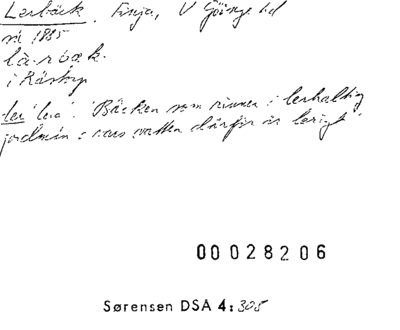 Lerbäck, Finja, V Göinge hd
nä 1885
lä.rbæk.
i Råskog
ler 'lera'. 'Bäcken som rinner i lerhaltig
jordmån : vars vatten därför är lerigt'.
00 028206
Sørensen DSA 4:305